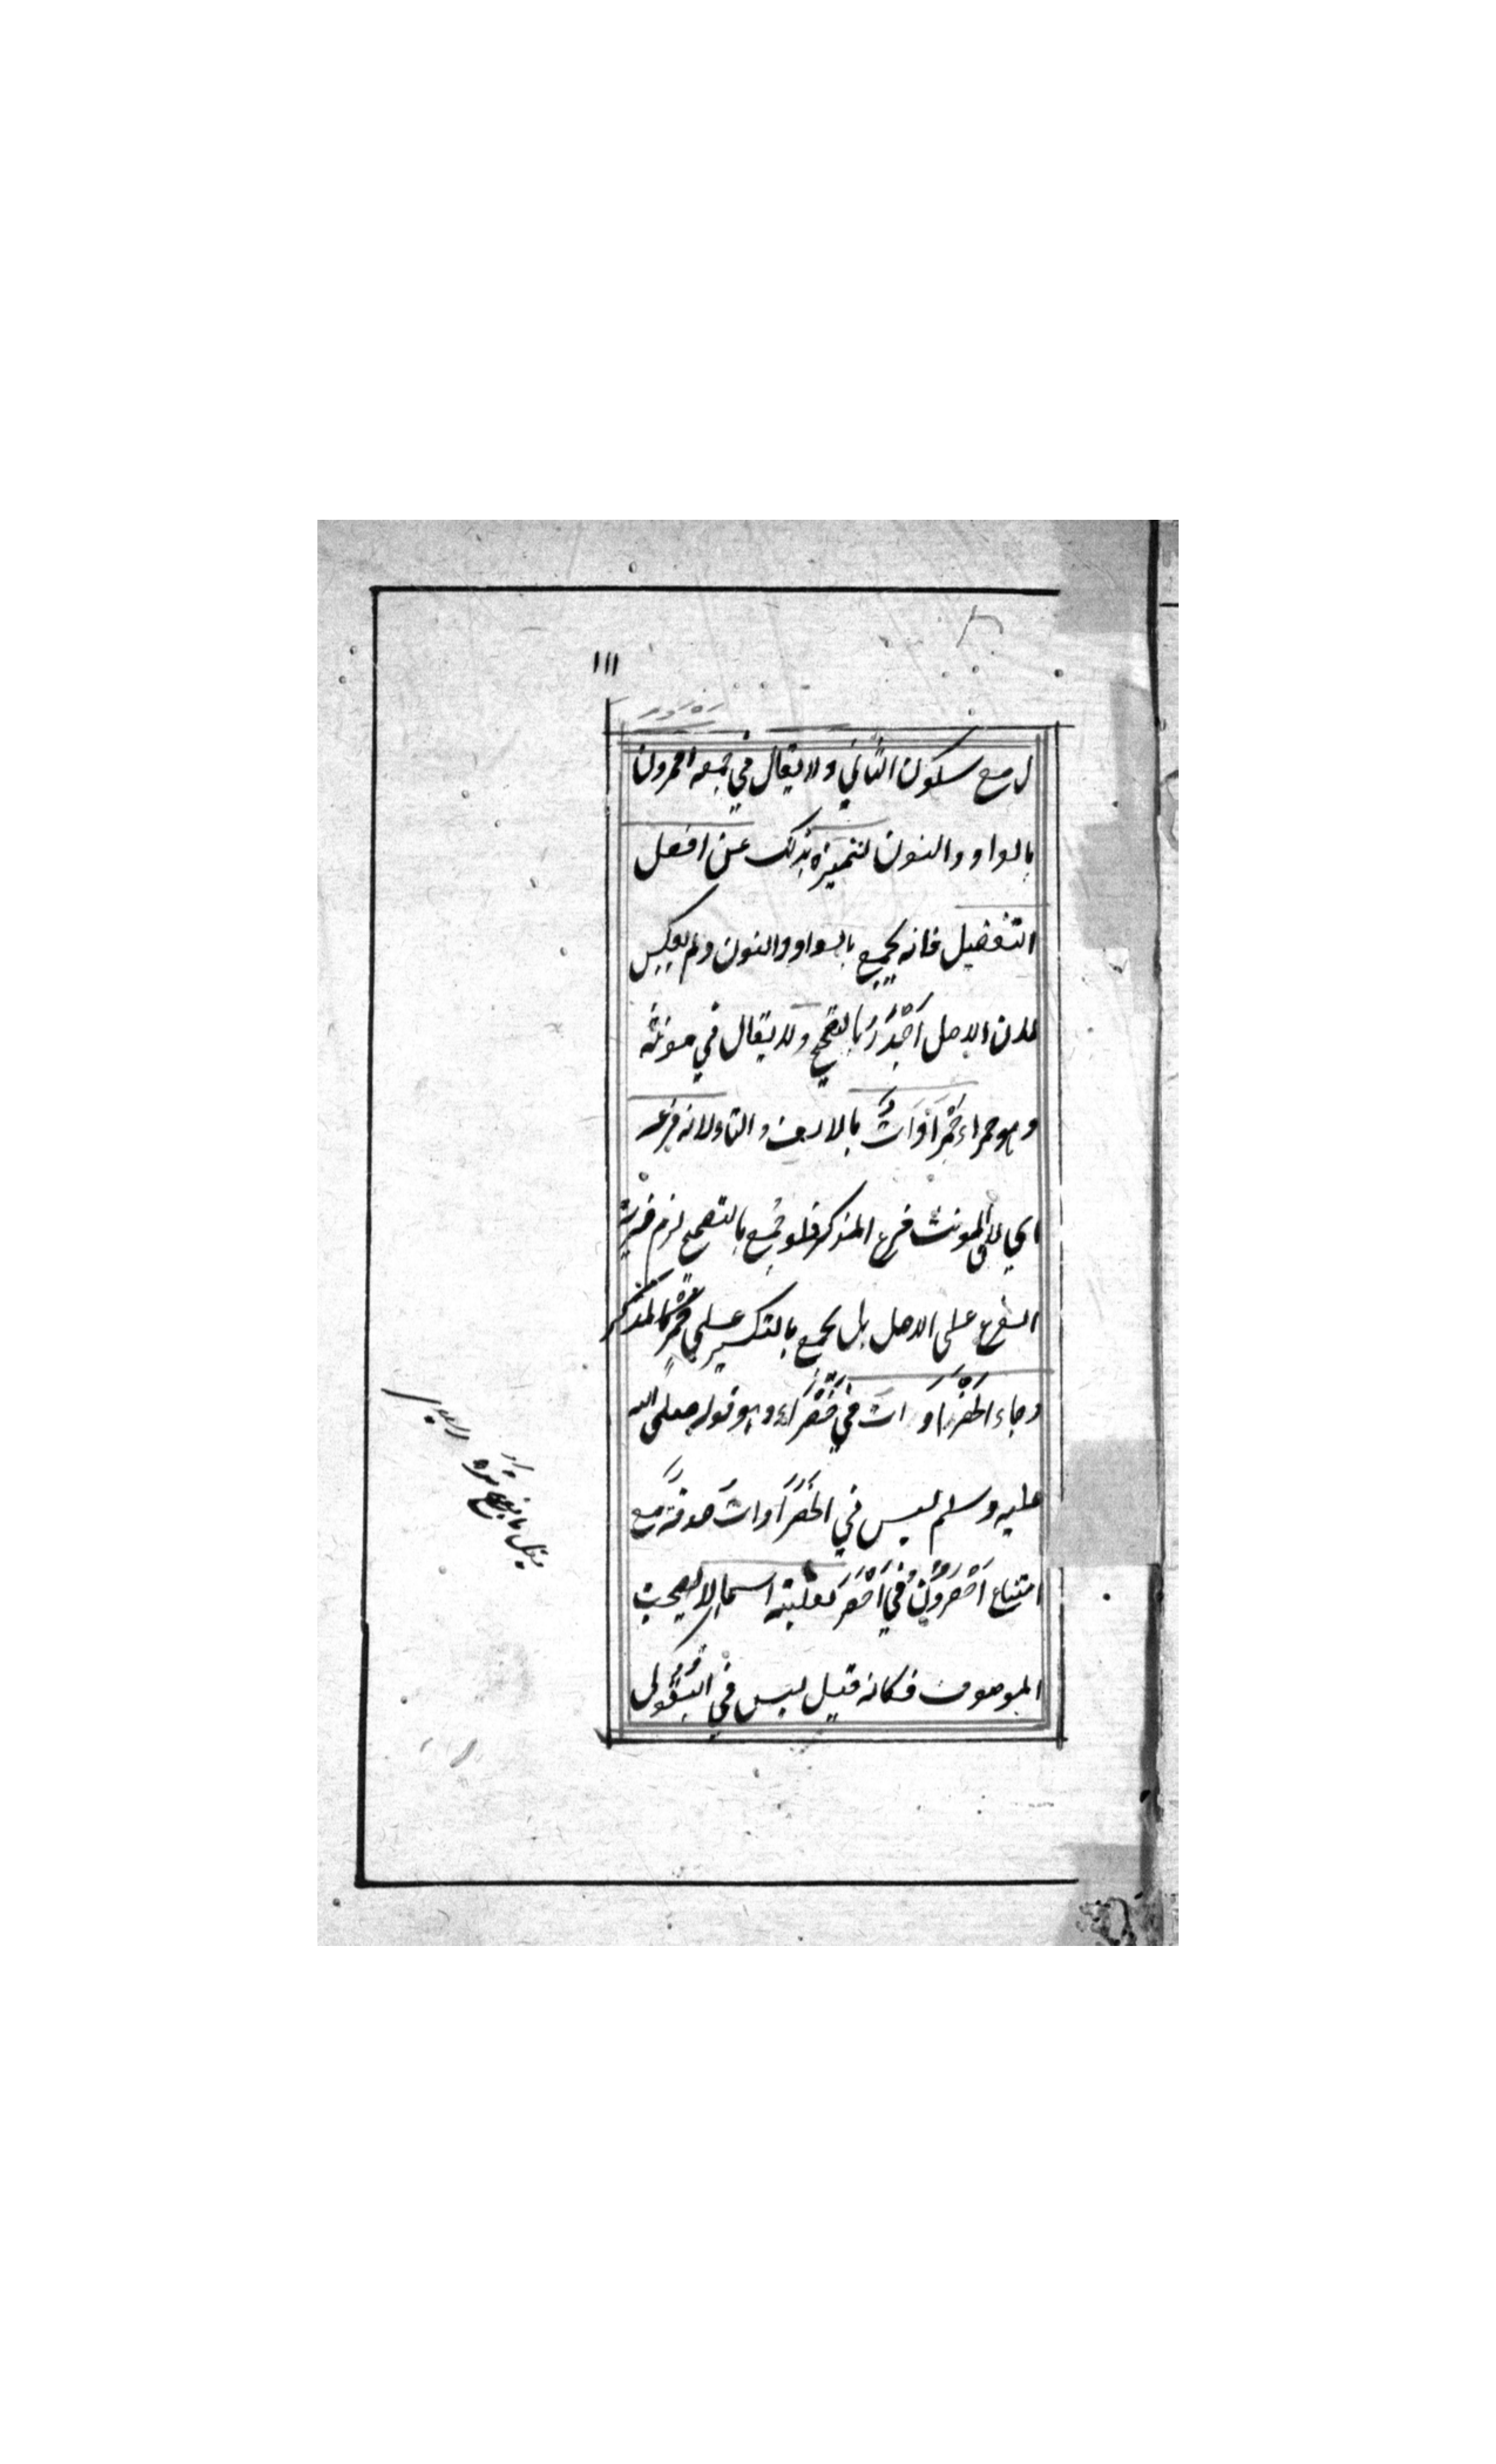 ١١١
ل مع سكون الثاني ولا يقال في جمعه احمرون
بالواو والنون لتميزه بذلك عن افعل
التفضيل فانه يجمع بالواو والنون ولم يعكس
لان الاصل اَجْدَرُ بالتصحيح ولا يقال في مونثه
وهو حمراء حَمْرَاوَاتٌ بالالف والتاء لانه فرعه
اي لان المونث فرع المذكر فلو جُمع بالتصحيح لزم مزية
الفرع على الاصل بل يجمع بالتكسير على حُمْرٍ كالمذكر
وجاء الخَضْرَاوَاتُ في خَضْرَاء وهو قوله صلى الله
عليه وسلم ليس في الخَضْرَاوَاتُ صدقة مع
امتناع اَخْضَرُوْنَ في اَخْضَرَ لغلبته اسما لا يصحب
الموصوف فكانه قيل ليس في البُقُولِ